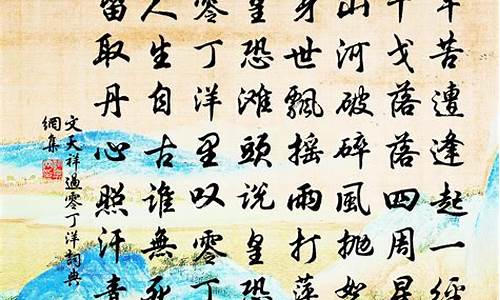 辛苦遭逢起一經
干戈落落四周星
山河破碎風抛絮
身世飄摇雨打萍
皇恐滩頭說皇恐
零丁洋里叹零丁
人生自古誰無死
留取丹心照汗青
文天祥過零丁洋詞典
網集